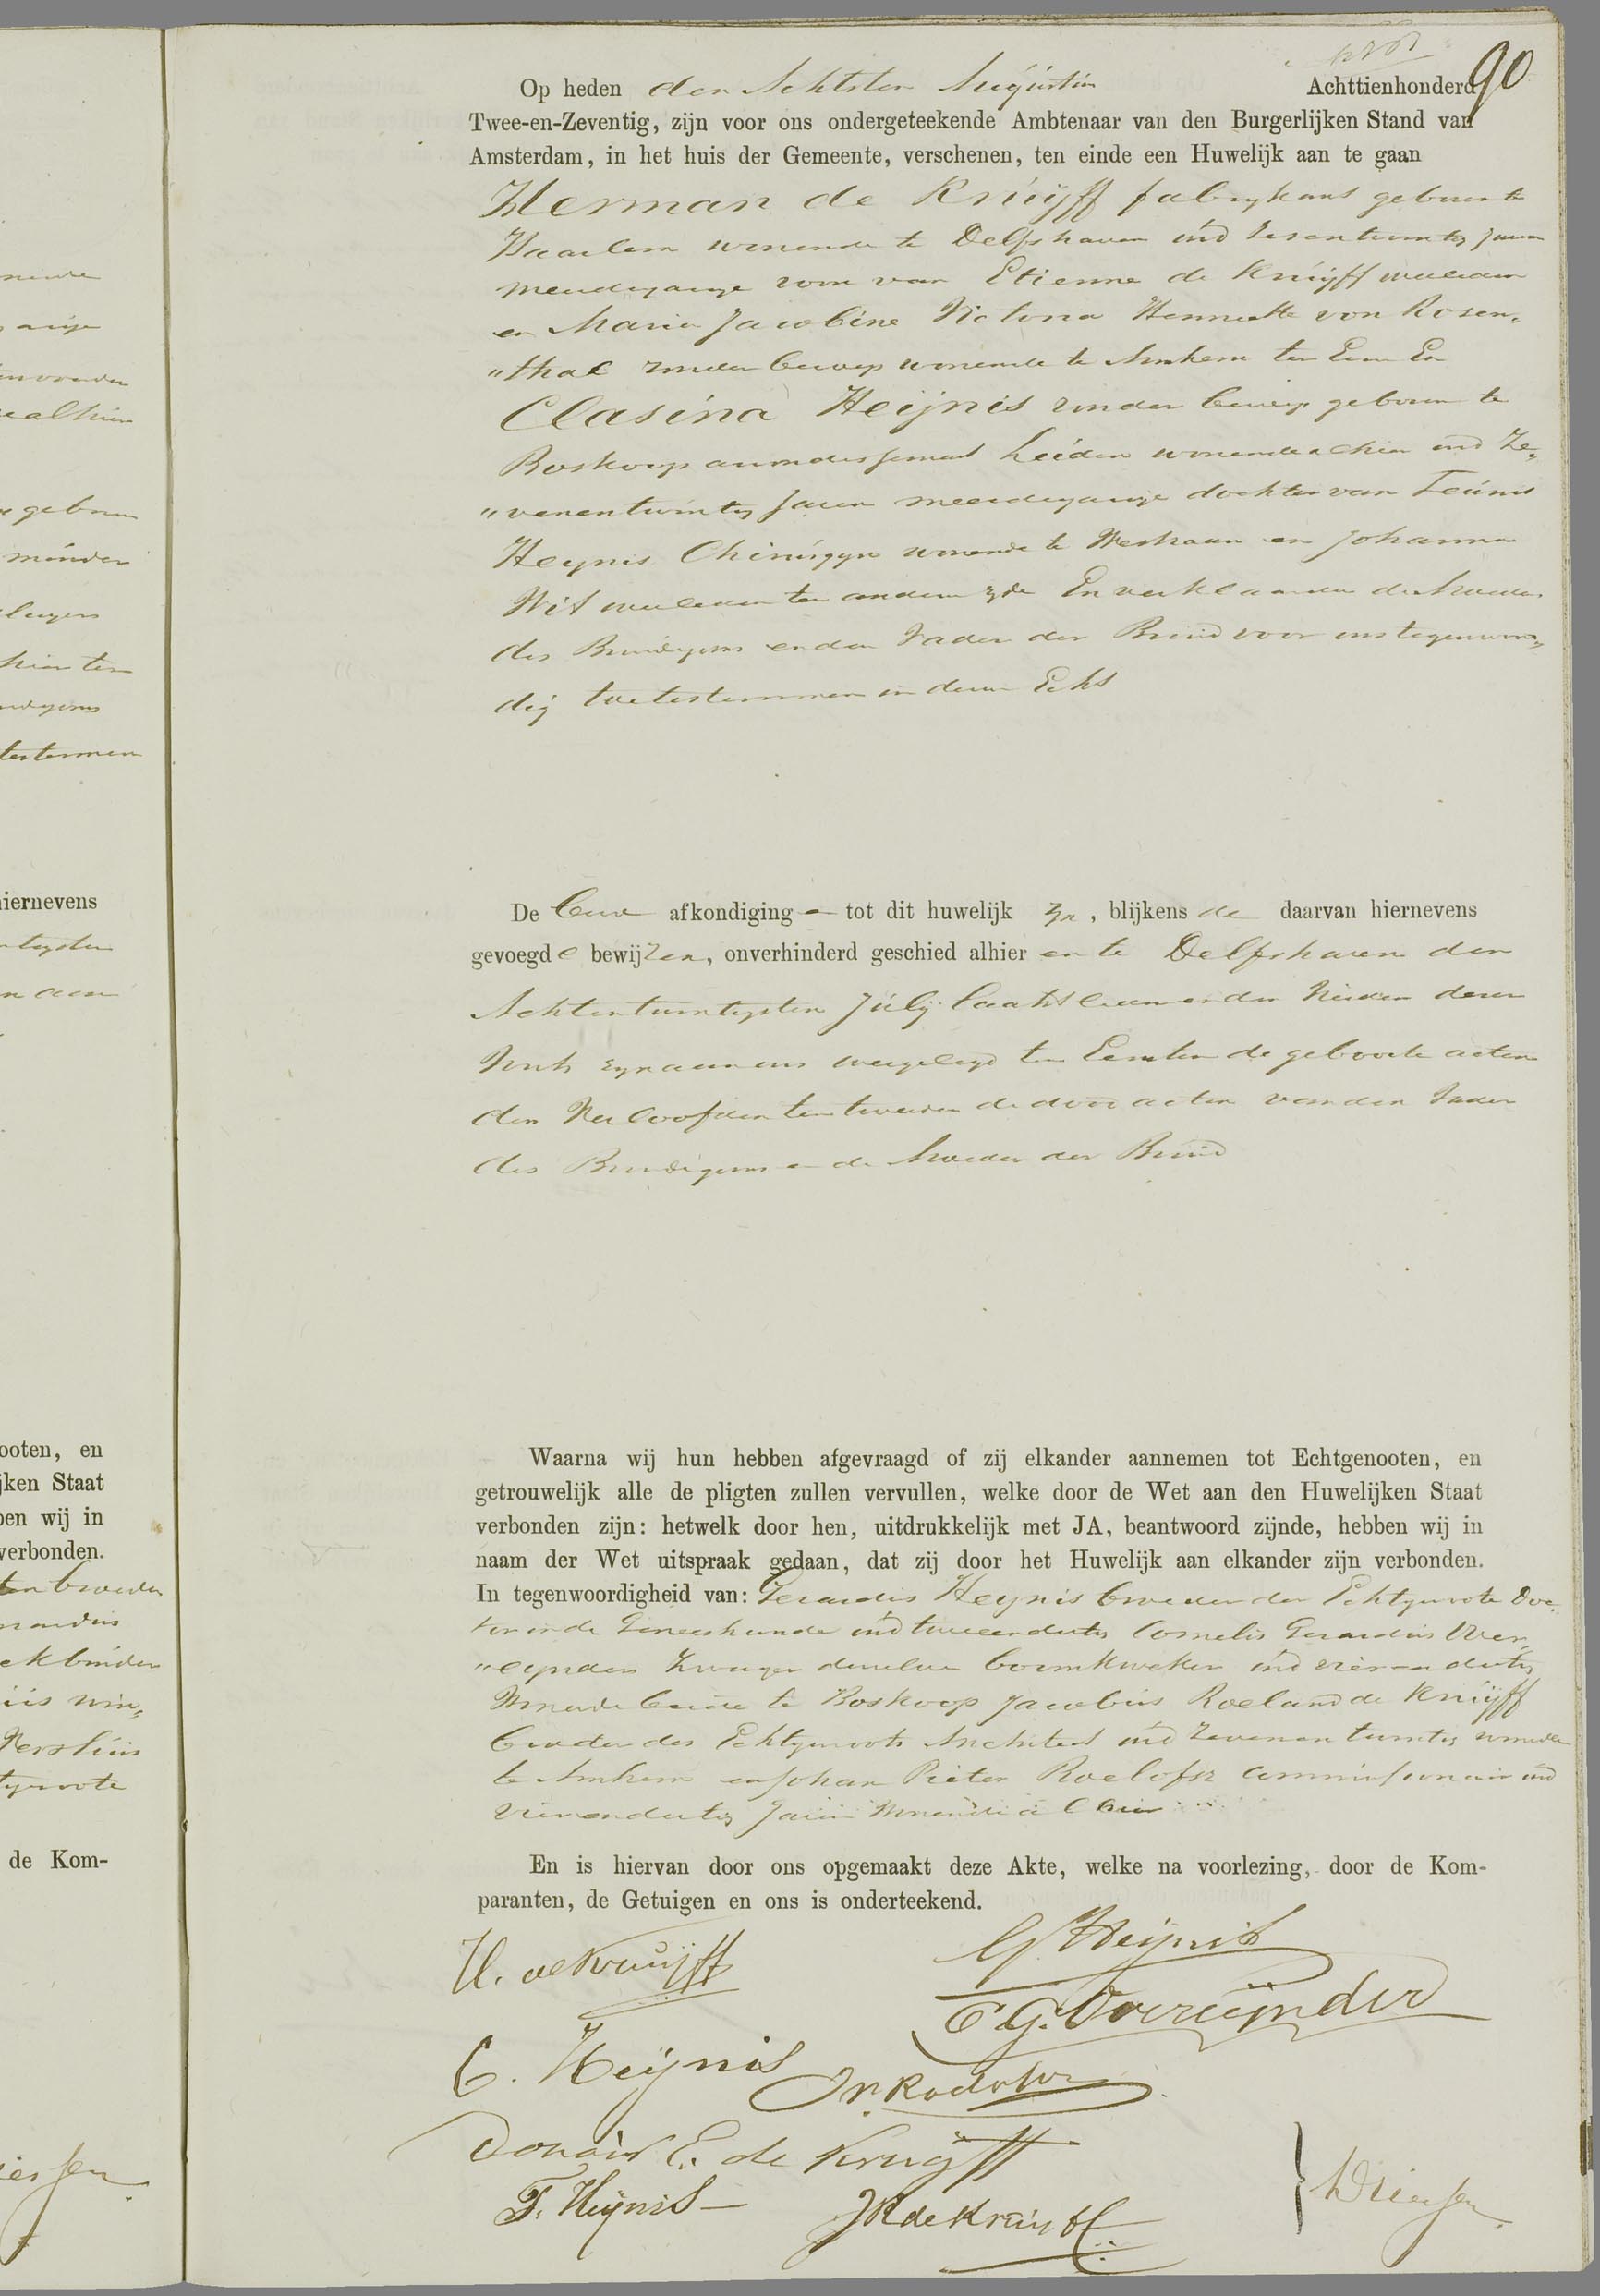 90
Op heden den Achtsten Augustus Achttienhonderd
Twee-en-Zeventig, zijn voor ons ondergeteekende Ambtenaar van den Burgerlijken Stand van
Amsterdam, in het huis der Gemeente, verschenen, ten einde een Huwelijk aan te gaan
Herman de Kruijff fabrykant geboren te
Haarlem wonende te Delfshaven oud zesentwintig jaren
meerderjarige zoon van Etienne de Kruijff overleden
en Maria Jacobine Victoria Henriette von Rosen„
„thal zonder beroep wonende te Arnhem ter Eene En
Clasina Heijnis zonder beroep geboren te
Boskoop arrondissement Leiden wonende alhier oud Ze„
„venentwintig Jaren meerderjarige dochter van Teunis
Heynis Chirurgyn wonende te en Johanna
Wit overleden ter andere zyde En verklaarden de Moeder
des Bruidegoms en den Vader der Bruid voor ons tegenwoor„
dig toetestemmen in dezen Echt
De twee afkondiging en tot dit huwelijk zyn, blijkens de daarvan hiernevens
gevoegde bewijzen, onverhinderd geschied alhier en te Delfshaven den
Achtentwintigsten July laatstleden en den Vierden dezer
zyn aan ons overgelegd ten Eersten de geboorte acten
der Verloofden ten tweeden de dood acten van den Vader
des Bruidegoms en de Moeder der Bruid
Waarna wij hun hebben afgevraagd of zij elkander aannemen tot Echtgenooten, en
getrouwelijk alle de pligten zullen vervullen, welke door de Wet aan den Huwelijken Staat
verbonden zijn: hetwelk door hen, uitdrukkelijk met JA, beantwoord zijnde, hebben wij in
naam der Wet uitspraak gedaan, dat zij door het Huwelijk aan elkander zijn verbonden.
In tegenwoordigheid van: Gerardus Heynis broeder der Echtgenoote Doc„
tor in de Geneeskunde oud tweeendertig Cornelis Gerardus Over„
„eynder Zwager derzelve boomkweker oud vierendertig
wonende beide te Boskoop Jacobus Roeland de Kruijff
broeder des Echtgenoots Architect oud Zevenentwintig wonende
te Arnhem en Johan Pieter Roelofsz Commissionair oud
vierendertig Jaren wonende alhier
En is hiervan door ons opgemaakt deze Akte, welke na voorlezing, door de Kom-
paranten, de Getuigen en ons is onderteekend.
H. de Kruijff
G. Heijnis
C. G. Overeijnder
C. Heijnis
J. P. Roelofsz
Douair E. de Kruijff
T. Heijnis
J R de Kruijff
ooten, en
jken Staat
ben wij in
verbonden.
iernevens
de Kom-